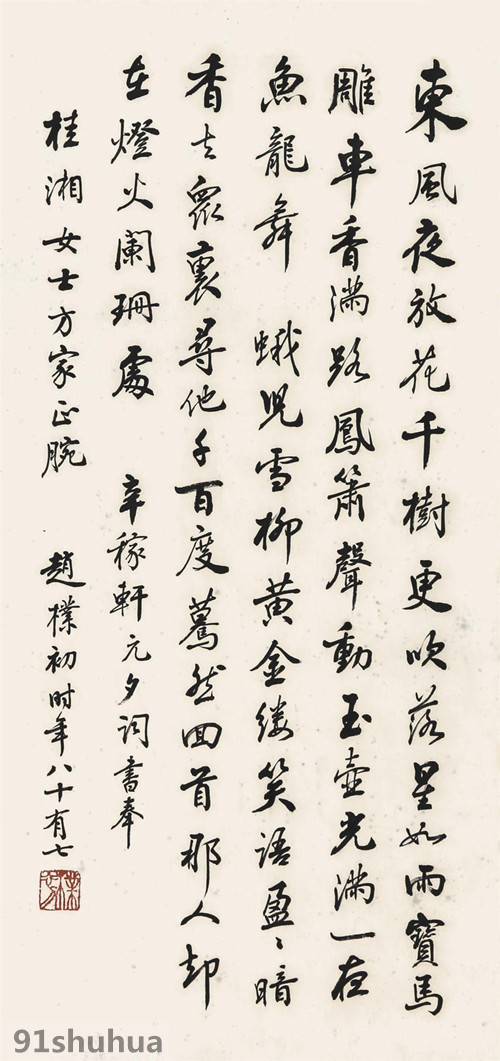 東風夜放花千樹更吹落星如雨寶馬
雕車香滿路鳳簫聲動玉壺光轉一夜
魚龍舞 蛾兒雪柳黃金縷笑語盈〻暗
香去衆裏尋他千百度驀然回首那人却
在燈火闌珊處 辛稼軒元夕詞書奉
桂湘女士方家正腕 趙樸初时年八十有七
91shuhua